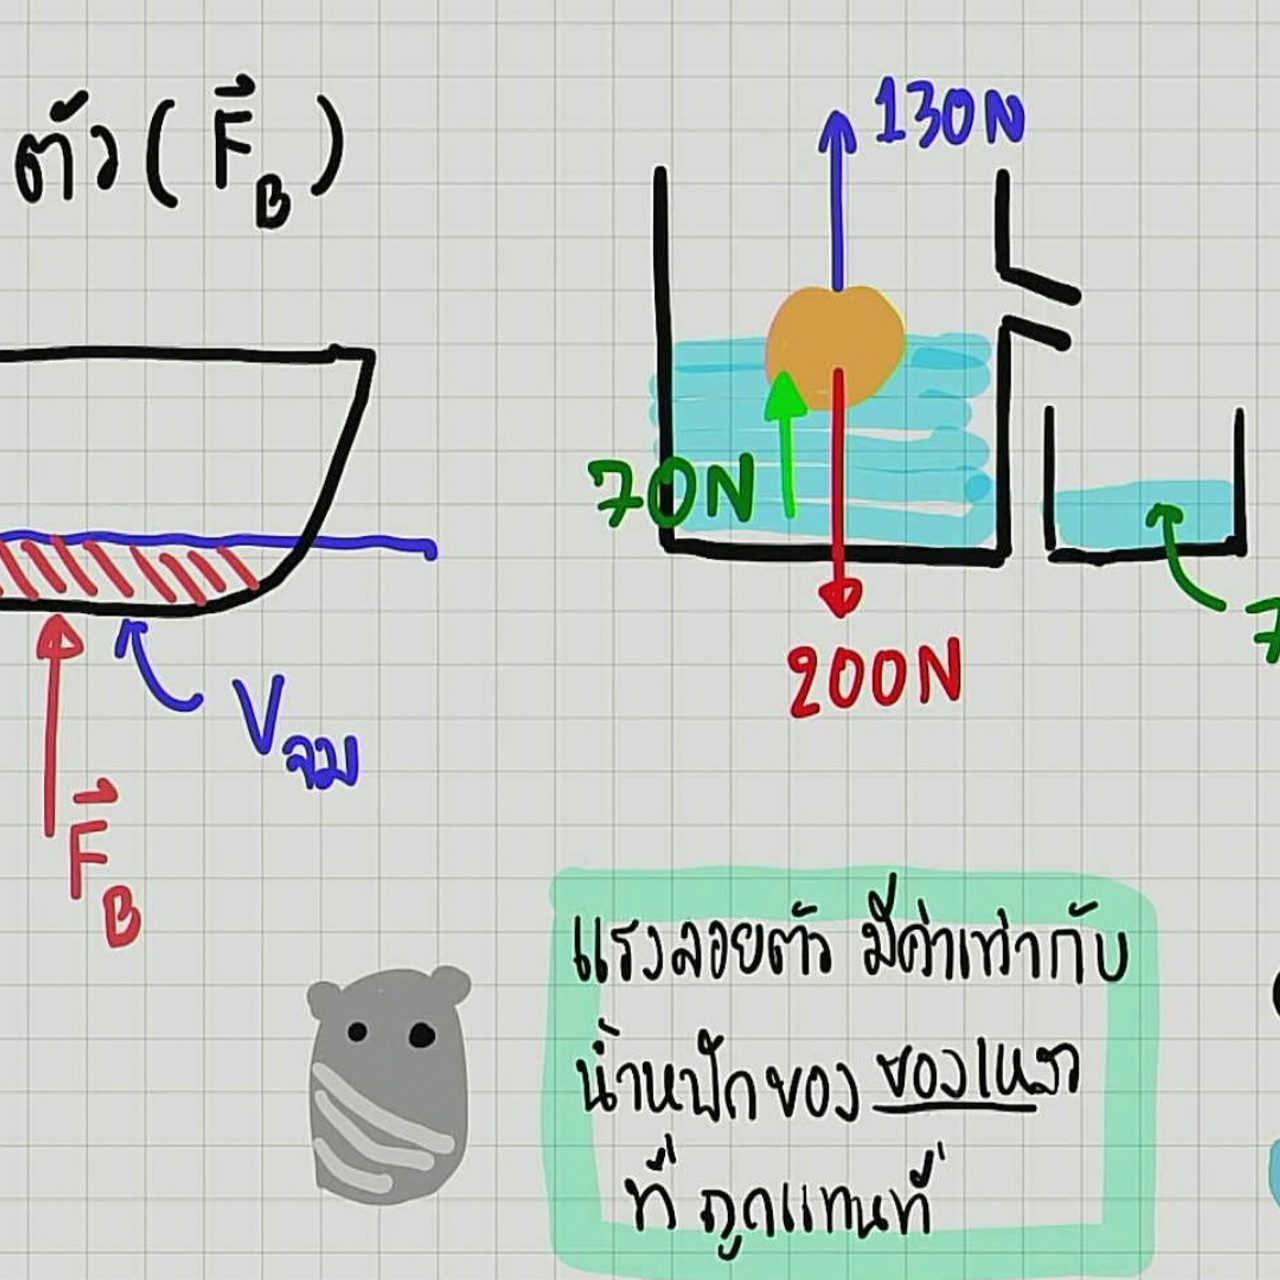 ตัว ( F⃗B )
130N
70N
7
200N
Vจม
F⃗B
แรงลอยตัว มีค่าเท่ากับ
น้ำหนักของ ของเหลว
ที่ ถูกแทนที่